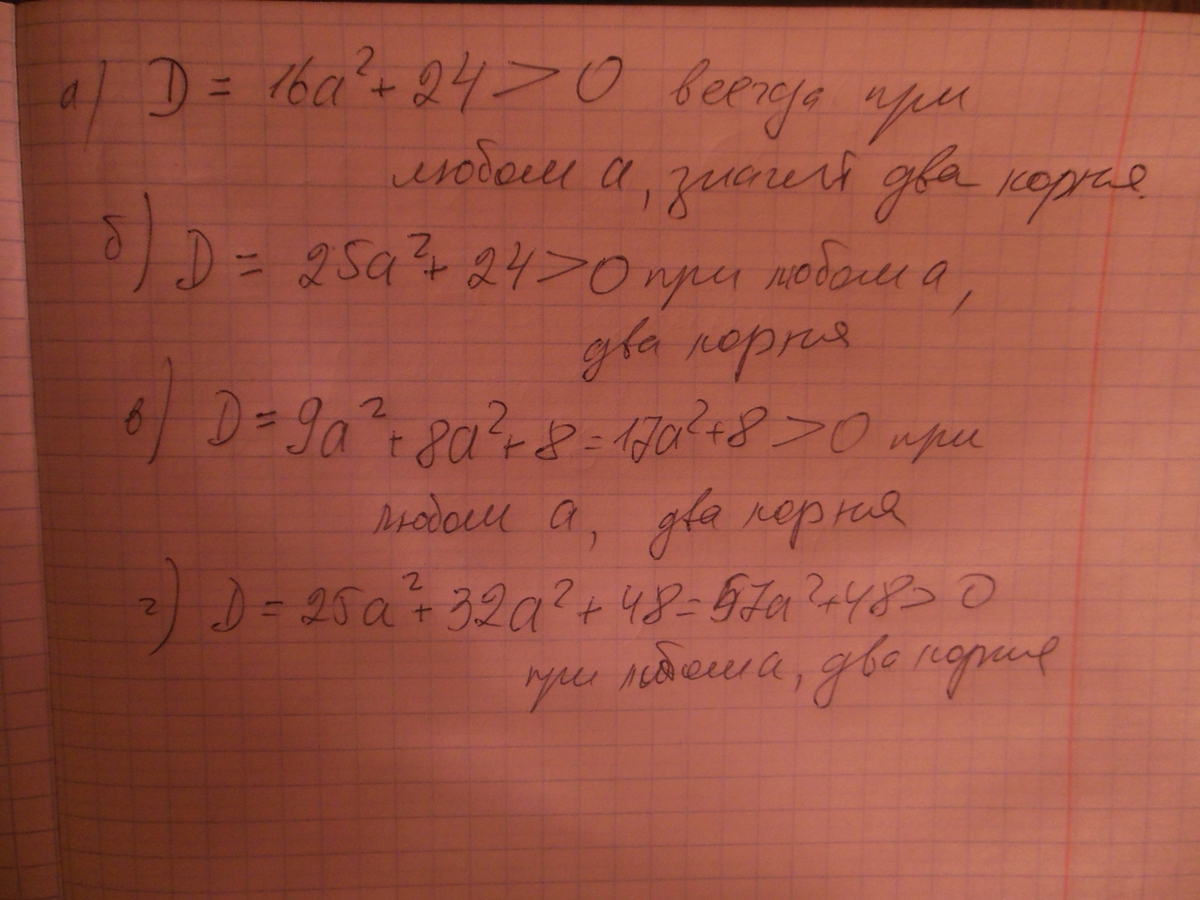 а) D = 16a² + 24 > 0 всегда при
любом a, значит два корня.
б) D = 25a² + 24 > 0 при любом a,
два корня
в) D = 9a² + 8a² + 8 = 17a² + 8 > 0 при
любом a, два корня
г) D = 25a² + 32a² + 48 = 57a² + 48 > 0
при любом a, два корня